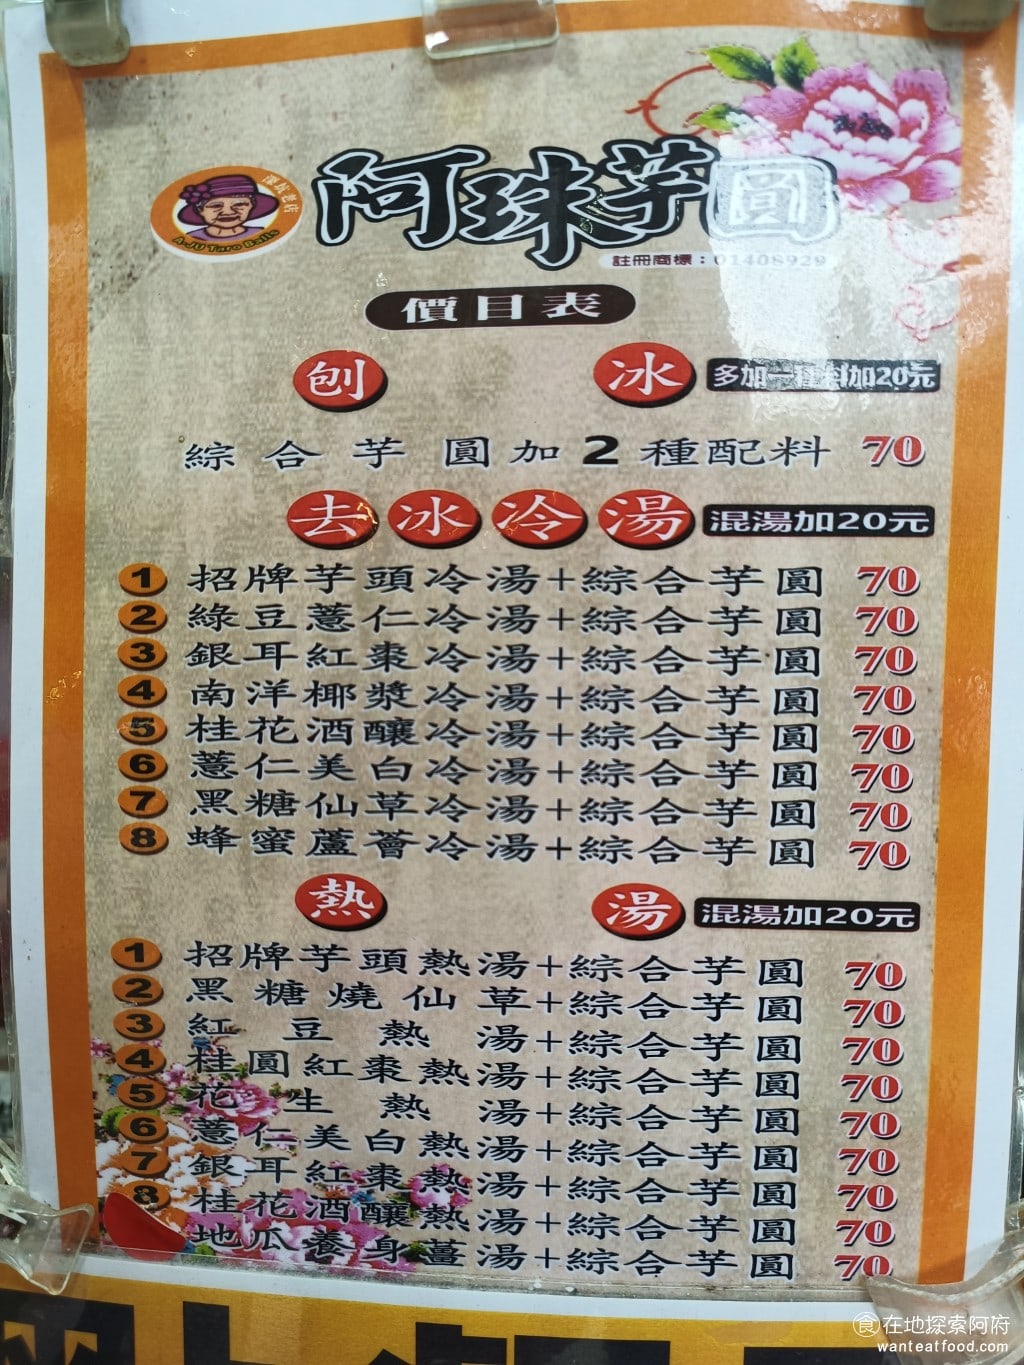 深坑老店
A-JU Taro Balls
阿珠芋圓
註冊商標：01408929
價目表
刨冰 多加一種料加20元
綜合芋圓加2種配料 70
去冰冷湯 混湯加20元
1 招牌芋頭冷湯+綜合芋圓 70
2 綠豆薏仁冷湯+綜合芋圓 70
3 銀耳紅棗冷湯+綜合芋圓 70
4 南洋椰漿冷湯+綜合芋圓 70
5 桂花酒釀冷湯+綜合芋圓 70
6 薏仁美白冷湯+綜合芋圓 70
7 黑糖仙草冷湯+綜合芋圓 70
8 蜂蜜蘆薈冷湯+綜合芋圓 70
熱湯 混湯加20元
1 招牌芋頭熱湯+綜合芋圓 70
2 黑糖燒仙草+綜合芋圓 70
3 紅豆熱湯+綜合芋圓 70
4 桂圓紅棗熱湯+綜合芋圓 70
5 花生熱湯+綜合芋圓 70
6 薏仁美白熱湯+綜合芋圓 70
7 銀耳紅棗熱湯+綜合芋圓 70
8 桂花酒釀熱湯+綜合芋圓 70
地瓜養身薑湯+綜合芋圓 70
食在地探索阿府
wanteatfood.com